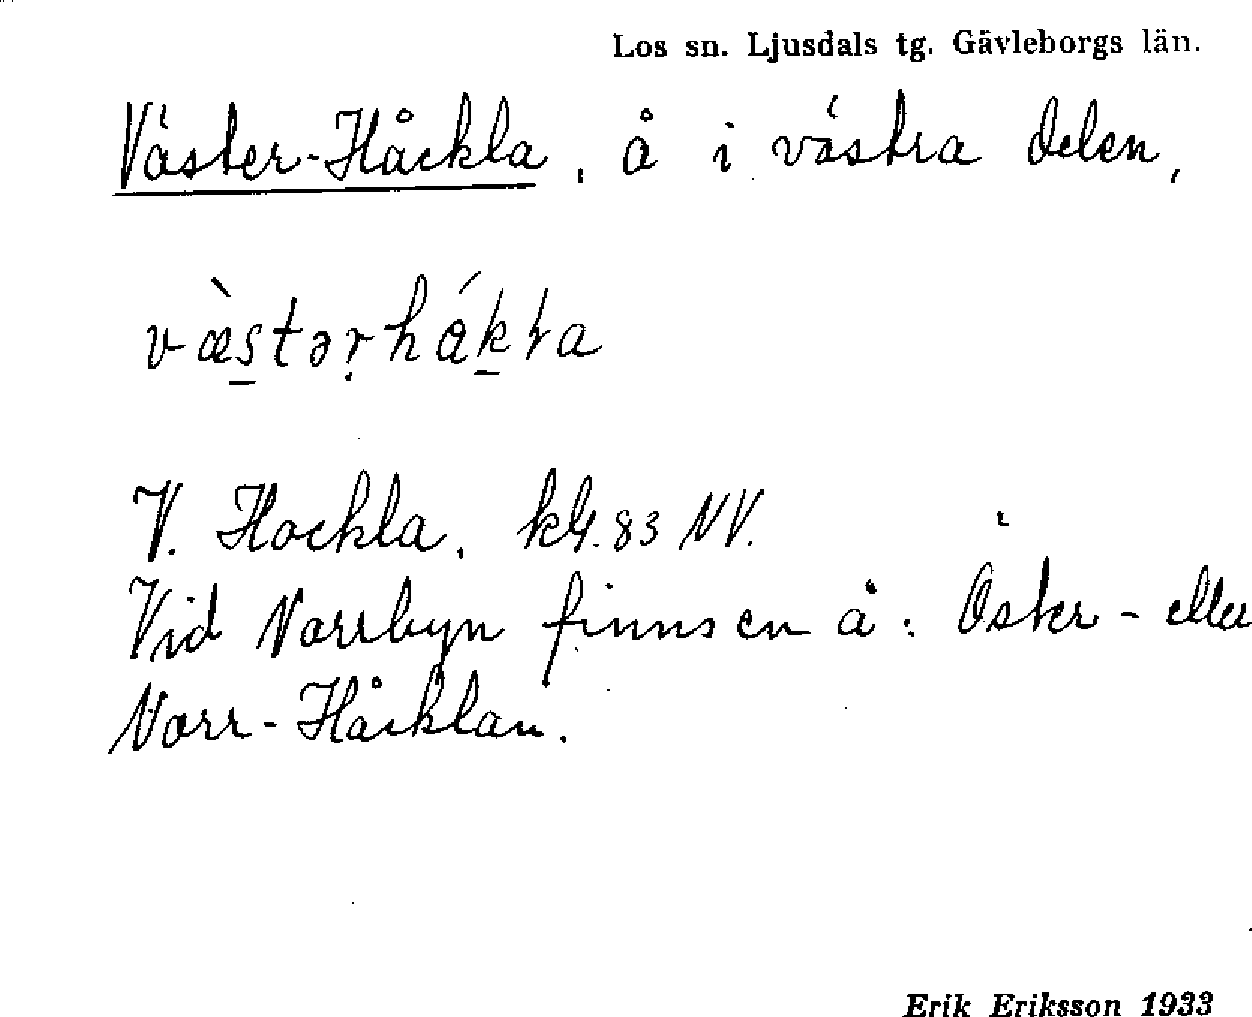 Los sn. Ljusdals tg. Gävleborgs län.
Väster-Håckla, å i västra delen,
væ̀s̠tərḥák̠ɫa
V. Hockla, kbl. 83 NV.
Vid Norrbyn finns en å: Öster- eller
Norr-Håcklan.
Erik Eriksson 1933